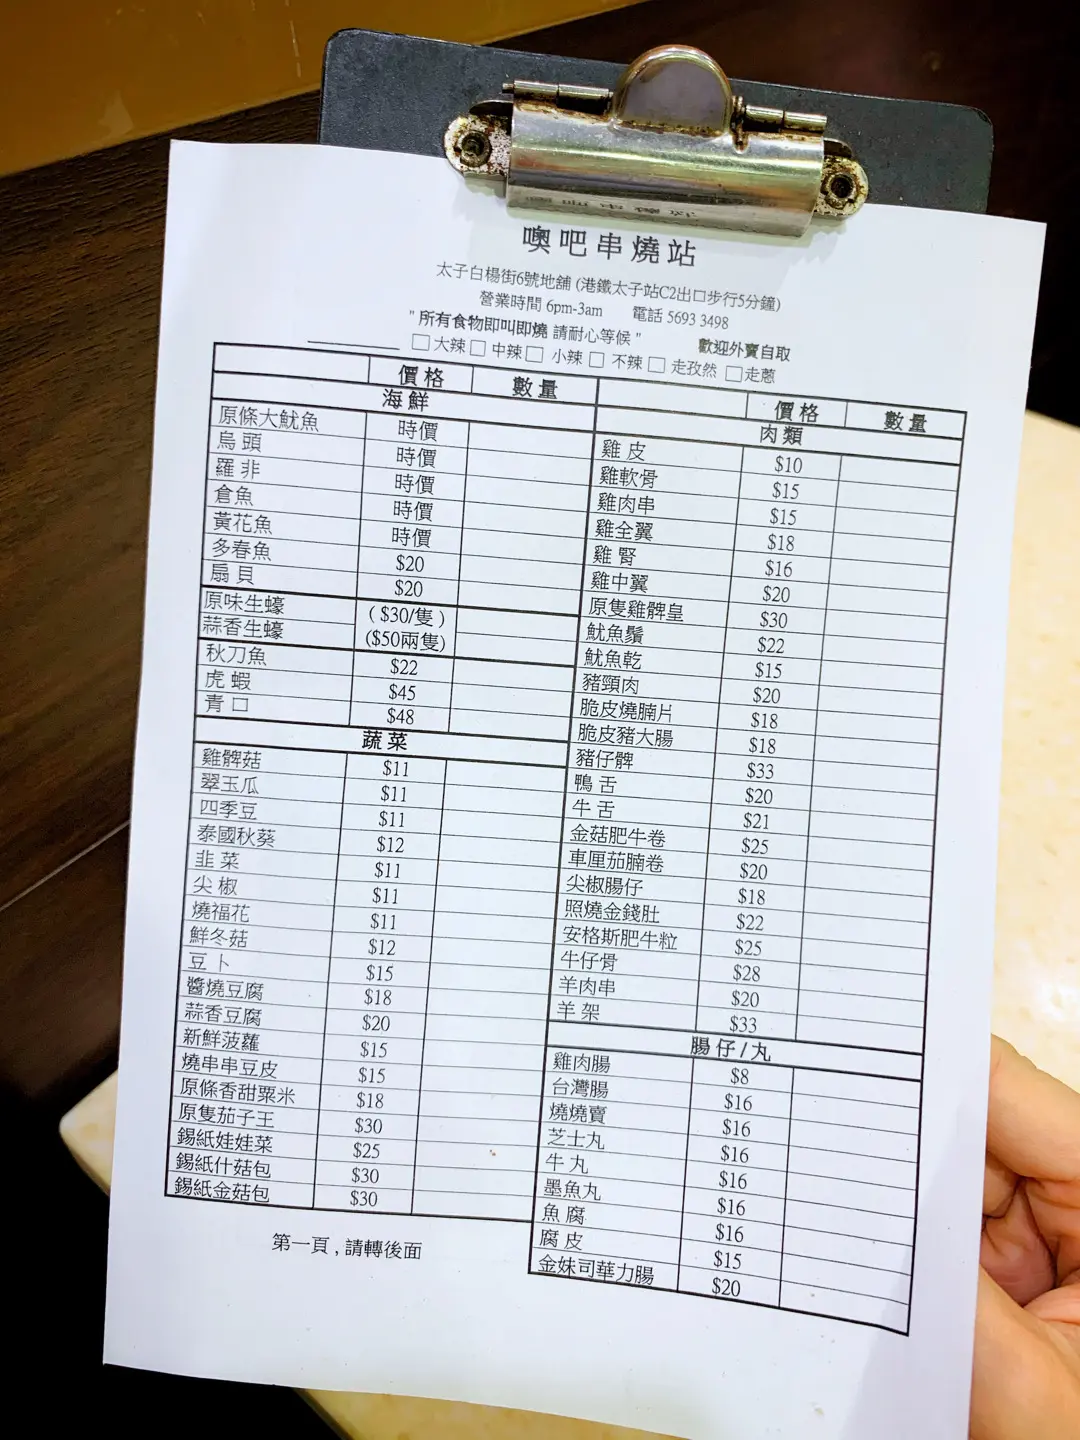 噢吧串燒站
太子白楊街6號地舖 (港鐵太子站C2出口步行5分鐘)
營業時間 6pm-3am 電話 5693 3498
" 所有食物即叫即燒 請耐心等候 " 歡迎外賣自取
大辣 中辣 小辣 不辣 走孜然 走蔥
價格 數量
海鮮
原條大魷魚 時價
烏頭 時價
羅非 時價
倉魚 時價
黃花魚 時價
多春魚 $20
扇貝 $20
原味生蠔 ( $30/隻 )
蒜香生蠔 ($50兩隻)
秋刀魚 $22
虎蝦 $45
青口 $48
蔬菜
雞髀菇 $11
翠玉瓜 $11
四季豆 $11
泰國秋葵 $12
韭菜 $11
尖椒 $11
燒福花 $11
鮮冬菇 $12
豆卜 $15
醬燒豆腐 $18
蒜香豆腐 $20
新鮮菠蘿 $15
燒串串豆皮 $15
原條香甜粟米 $18
原隻茄子王 $30
錫紙娃娃菜 $25
錫紙什菇包 $30
錫紙金菇包 $30
第一頁 , 請轉後面
價格 數量
肉類
雞皮 $10
雞軟骨 $15
雞肉串 $15
雞全翼 $18
雞腎 $16
雞中翼 $20
原隻雞髀皇 $30
魷魚鬚 $22
魷魚乾 $15
豬頸肉 $20
脆皮燒腩片 $18
脆皮豬大腸 $18
豬仔髀 $33
鴨舌 $20
牛舌 $21
金菇肥牛卷 $25
車厘茄腩卷 $20
尖椒腸仔 $18
照燒金錢肚 $22
安格斯肥牛粒 $25
牛仔骨 $28
羊肉串 $20
羊架 $33
腸仔/丸
雞肉腸 $8
台灣腸 $16
燒燒賣 $16
芝士丸 $16
牛丸 $16
墨魚丸 $16
魚腐 $16
腐皮 $15
金妹司華力腸 $20